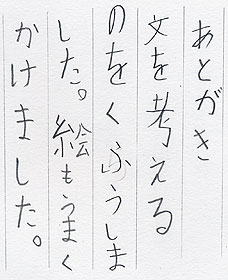 あとがき
文を考える
のをくふうしま
した。絵もうまく
かけました。